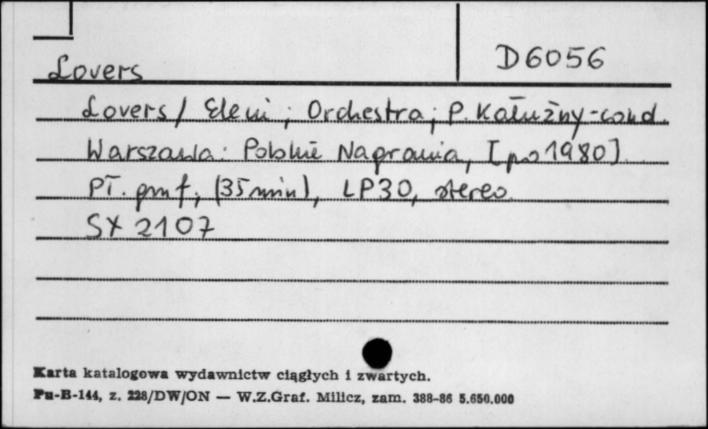 D6056
Lovers
Lovers / Eleni ; Orchestra ; P. Kałużny - cond.
Warszawa : Polskie Nagrania, [po 1980].
Pł. gmf, (35 min), LP30, stereo.
SX 2107
Karta katalogowa wydawnictw ciągłych i zwartych.
Pu-B-144, z. 228/DW/ON — W.Z.Graf. Milicz, zam. 388-86 5.650.000